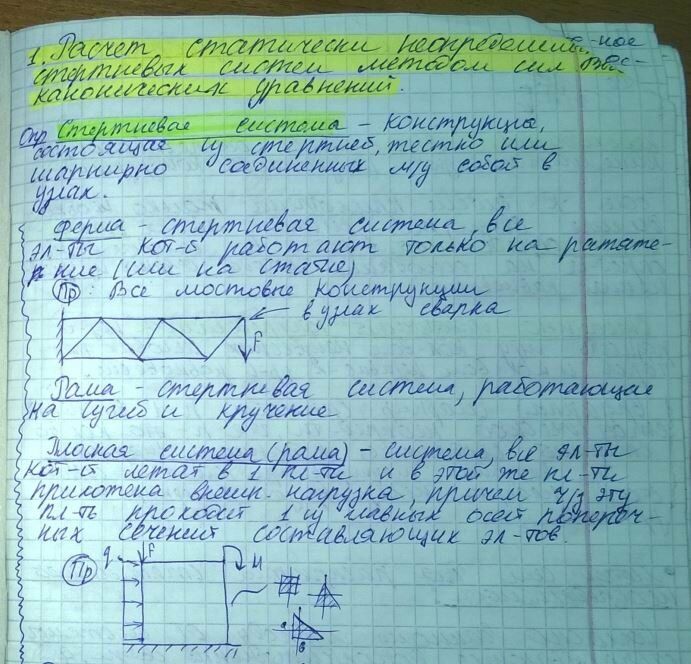 1. Расчет статически неопределимых -ное
стержневых систем методом сил.
канонических уравнений.
Опр Стержневая система - конструкция,
состоящая из стержней, жестко или
шарнирно соединенных м/у собой в
узлах.
Ферма - стержневая система, все
эл-ты кот-й работают только на растяже-
ние (или на сжатие)
Пр: Все мостовые конструкции
в узлах сварка
F
Рама - стержневая система, работающая
на изгиб и кручение
Плоская система (рама) - система, все эл-ты
кот-й лежат в 1 пл-ти и в этой же пл-ти
приложена внешн. нагрузка, причем ч/з эту
пл-ть проходит 1 из главных осей попереч-
ных сечений составляющих эл-тов.
Пр q F M
a
b